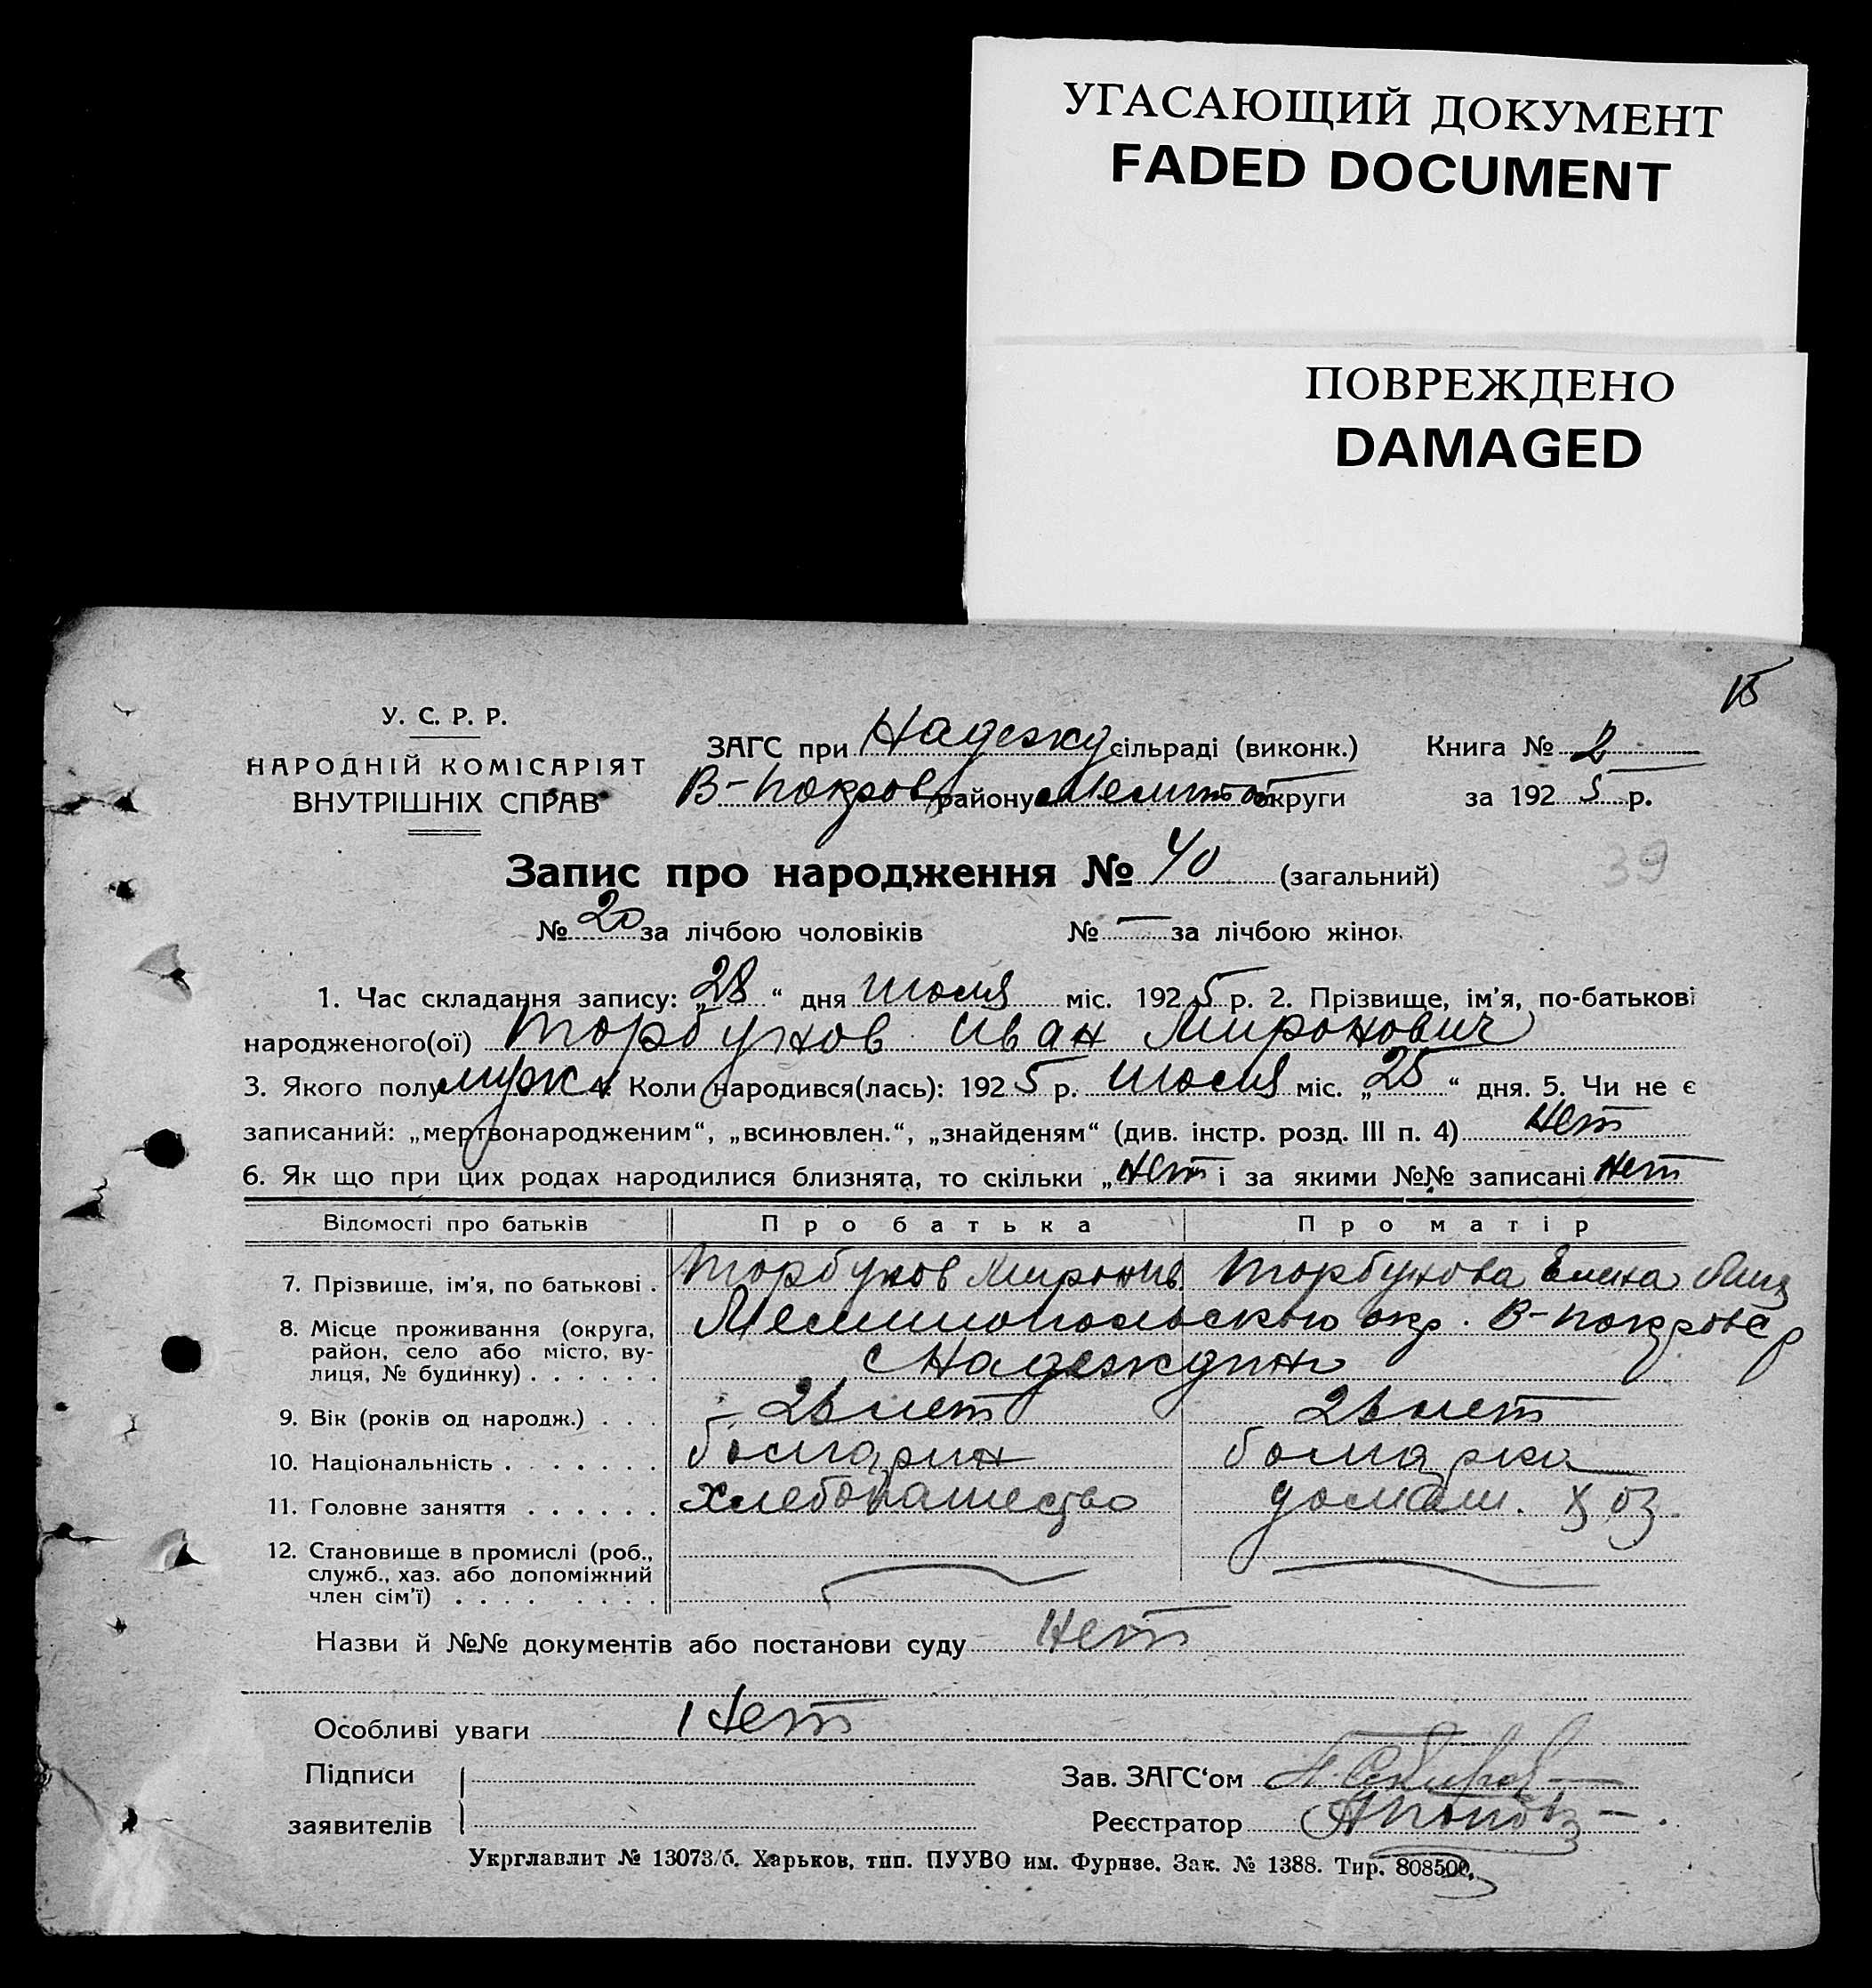 УГАСАЮЩИЙ ДОКУМЕНТ
FADED DOCUMENT
ПОВРЕЖДЕНО
DAMAGED
15
У. С. Р. Р.
НАРОДНІЙ КОМІСАРІЯТ
ВНУТРІШНІХ СПРАВ
ЗАГС при Надежд сільраді (виконк.) Книга № 2
В-Покров району Мелитоп округи за 1925 р.
Запис про народження № 40 (загальний)
39
№ 20 за лічбою чоловіків № — за лічбою жінок
1. Час складання запису: „28“ дня Июля міс. 1925 р. 2. Прізвище, ім’я, по-батькові
народженого(ої) Торбунов Иван Миронович
3. Якого полу муж 4. Коли народився(лась): 1925 р. Июля міс. „25“ дня. 5. Чи не є
записаний: „мертвонародженим“, „всиновлен.“, „знайденям“ (див. інстр. розд. III п. 4) Нет
6. Як що при цих родах народилися близнята, то скільки „нет і за якими №№ записані нет
Відомості про батьків Про батька Про матір
7. Прізвище, ім’я, по батькові . Торбунов Мирон Ив. Торбунова Елена
8. Місце проживання (округа, район, село або місто, вулиця, № будинку) . . . . . . Мелитопольского окр. В-Покровс р
с Надеждино
9. Вік (років од народж.) . . . лет лет
10. Національність . . . . . . . болгарин болгарка
11. Головне заняття . . . . . . хлебопашество домаш. хоз.
12. Становище в промислі (роб.,
служб., хаз. або допоміжний
член сім’ї) . . . . . . . .
Назви й №№ документів або постанови суду Нет
Особливі уваги Нет
Підписи
заявителів
Зав. ЗАГС‘ом
Реєстратор АПопов
Укрглавлит № 13073/б. Харьков, тип. ПУУВО им. Фрунзе. Зак. № 1388. Тир. 808500.